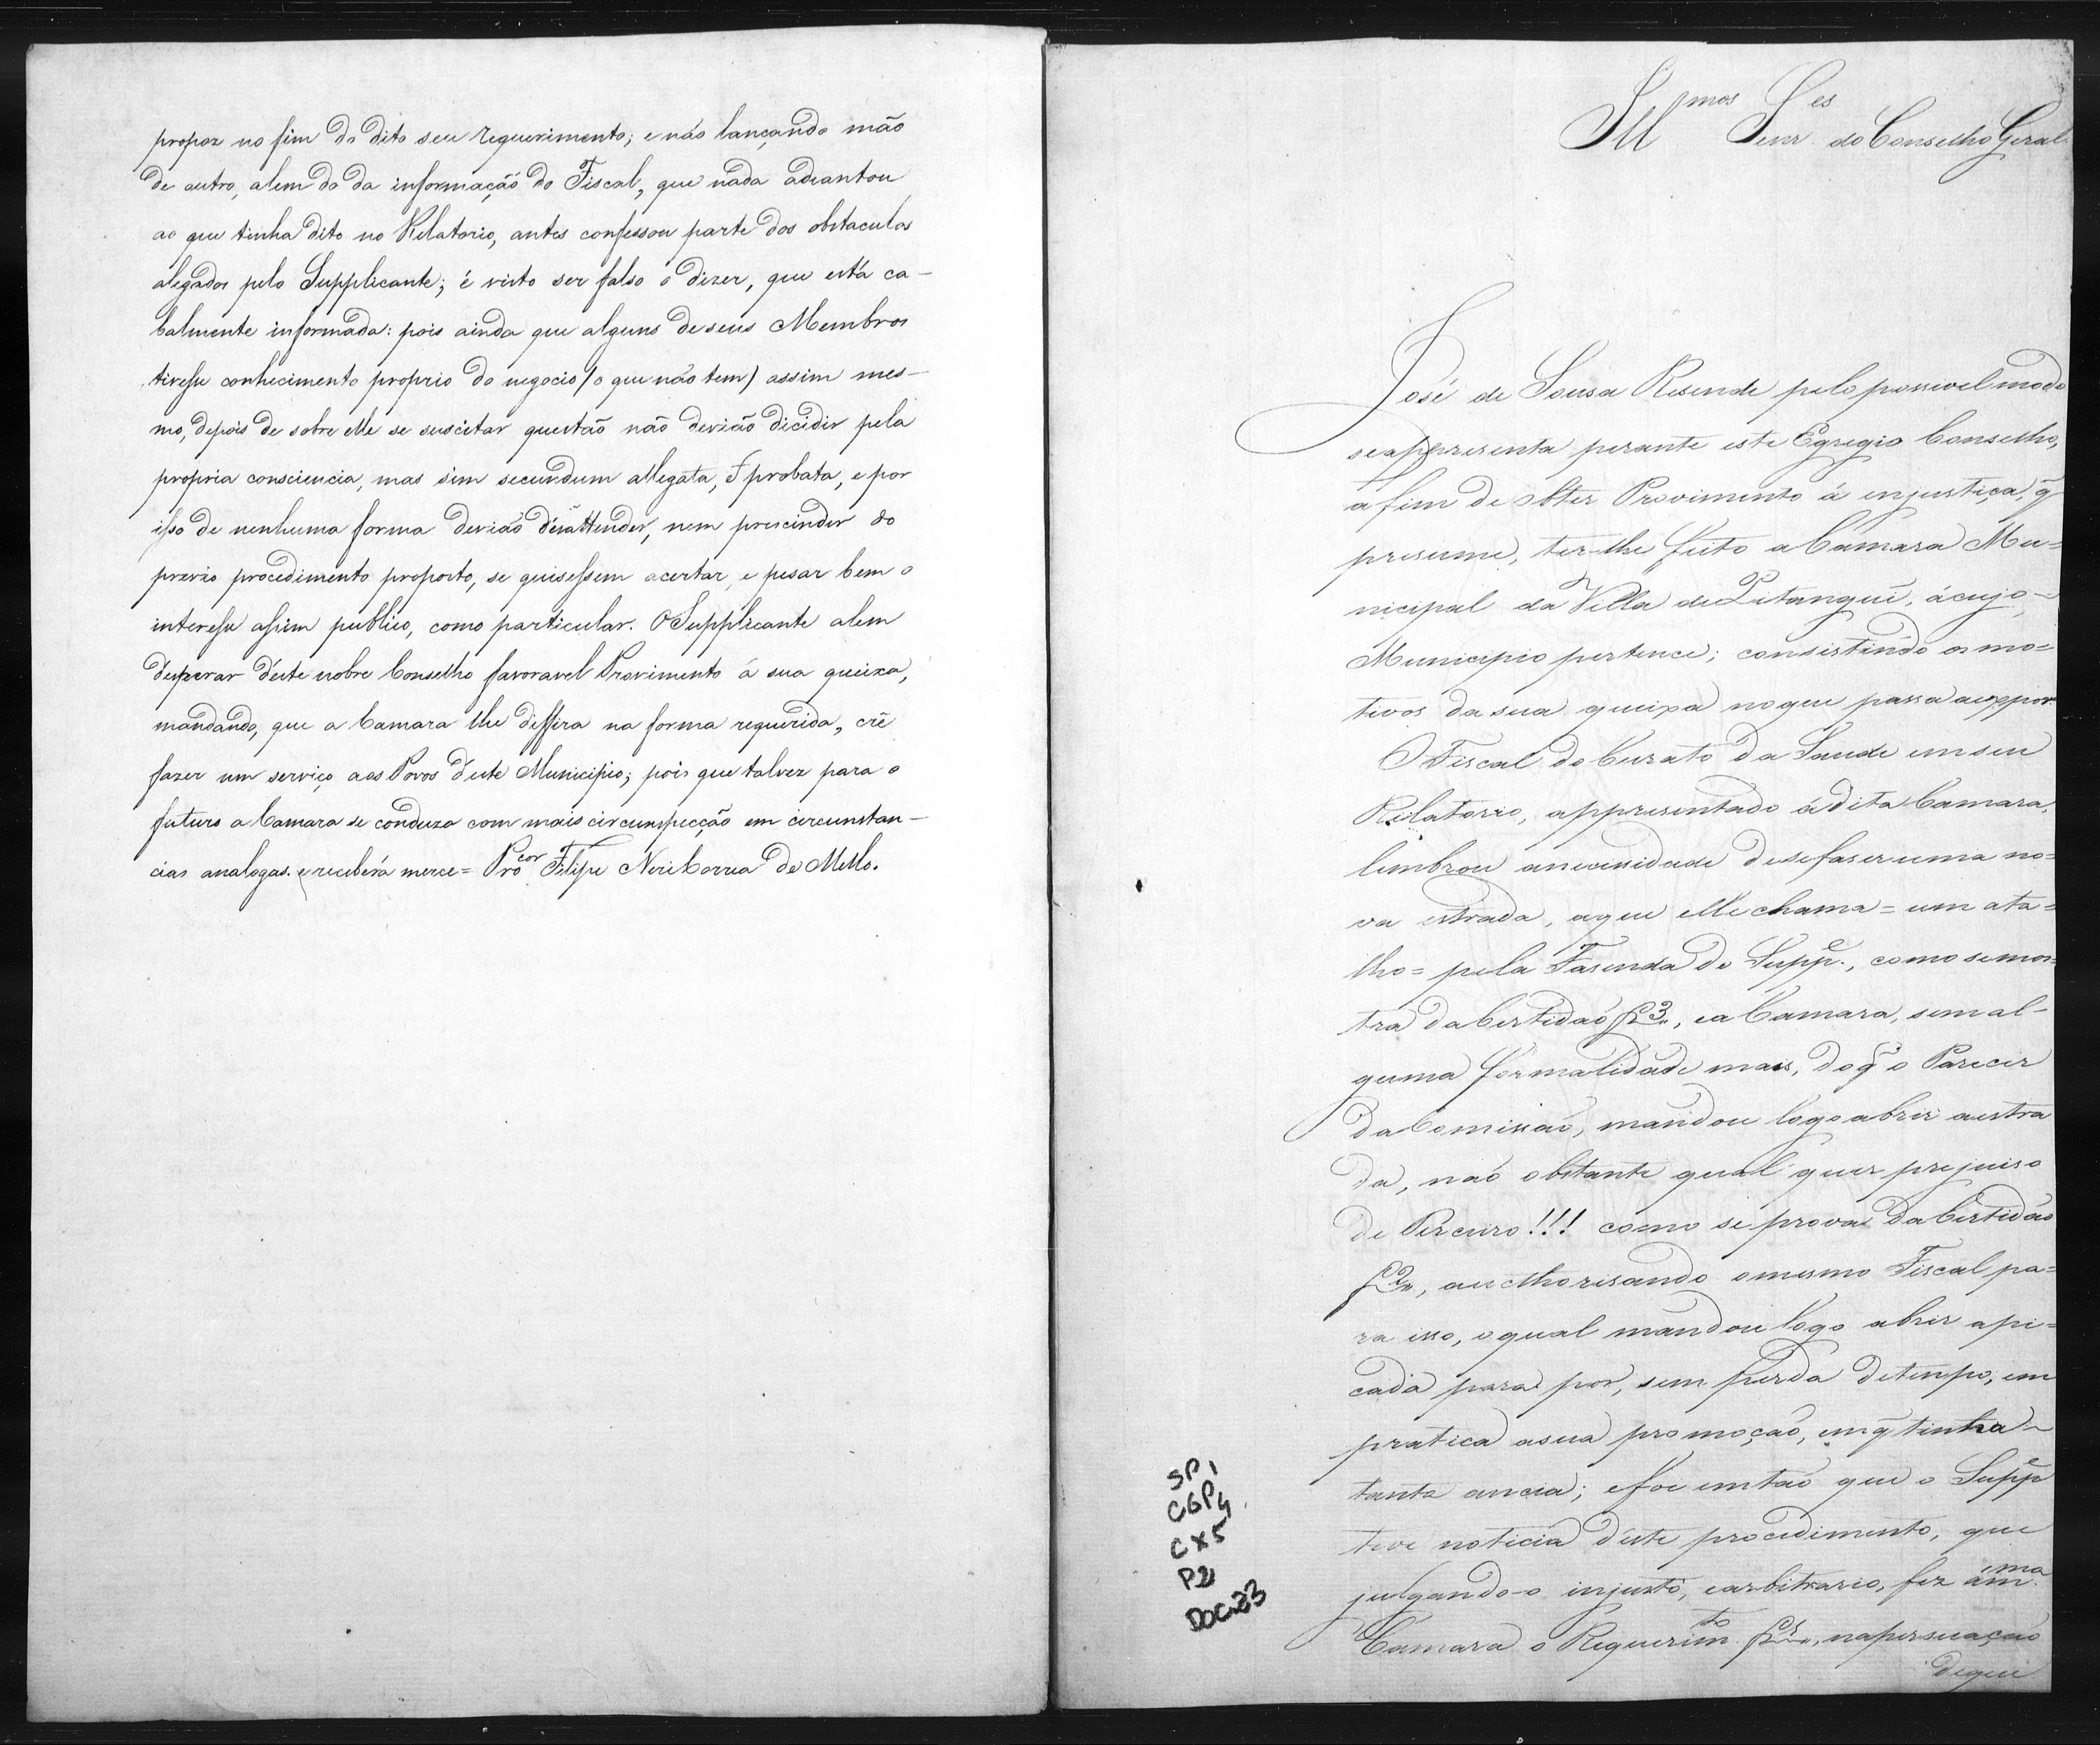 propoz no fim do dito seu requerimento; e não lançando mão
de outro, alem do da informação do Fiscal, que nada adeantou
ao que tinha dito no Relatorio, antes confessou parte dos obstaculos
alegados pelo Supplicante; é visto ser falso o dizer, que está ca-
balmente informada: pois ainda que alguns de seus Membros
tivesse conhecimento proprio do negocio (o que não tem) assim mes-
mo, depois de sobre elle se suscitar questão não devião dicidir pela
propria consciencia, mas sim secundum allegata, & probata, e por
isso de nenhuma forma devião desattender, nem prescindir do
previo procedimento proposto, se quisessem acertar, e pesar bem o
interesse assim publico, como particular. O Supplicante alem
d'esperar d'este nobre Conselho favoravel Provimento á sua queixa,
mandando, que a Camara lhe diffira na forma requerida, crê
fazer um serviço aos Povos d'este Municipio; pois que talvez para o
futuro a Camara se conduza com mais circunspecção em circunstan-
cias analogas. e receberá merce = Pro^cor Filipe Neri Correa de Mello.
Ill^mos Senr^es do Conselho Geral
José de Sousa Resende pelo possivel modo
se appresenta perante este Egregio Conselho,
a fim de obter Provimento á injustiça, q̃
presume, ter-lhe feito a Camara Mu=
nicipal da Villa de Pitangui, á cujo
Municipio pertence; consistindo os mo=
tivos da sua queixa no que passa a expor
O Fiscal do Curato da Saude em seu
Relatorio, appresentado á dita Camara,
lembrou a necessidade de se faser uma no=
va estrada, a que elle chama = um ata=
lho = pela Fasenda do Supp^e., como se mos=
tra da Certidaõ f 3, e a Camara, sem al-
guma formalidade mais, do q̃ o Parecer
da Comissaõ, mandou logo abrir a estra
da, naõ obstante qual quer prejuiso
de Terceiro!!! como se prova da Certidaõ
f 2, aucthorisando o mesmo Fiscal pa=
ra isso, o qual mandou logo abrir a pi=
cada para por, sem perda de tempo, em
pratica a sua promoçaõ, em q̃ tinha
tanta ancia; e foi entaõ que o Supp^e
teve noticia d'este procedimento, que
julgando-o injusto, e arbitrario, fez á m^ma
Camara o Requerim^to f 1, na persuaçaõ
de que
SP1
CGP4
CX5
P2
DOC.23